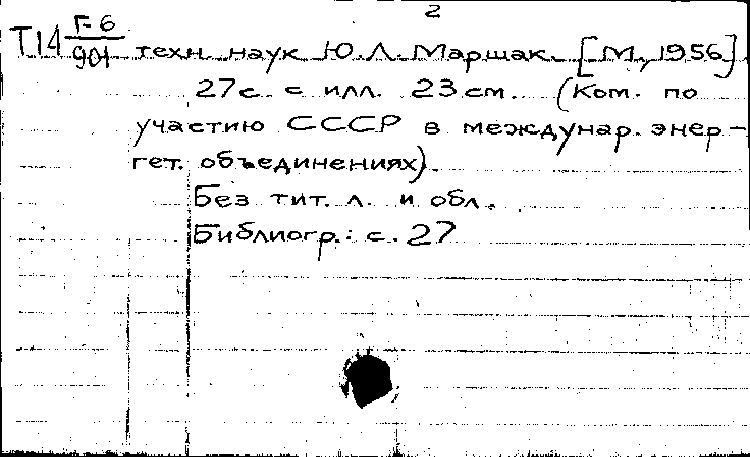 2
Т14 Г-6/901 техн. наук Ю.Л. Маршак. [М., 1956]
27с. с илл. 23см. (Ком. по
участию СССР в междунар. энер-
гет. объединениях).
Без тит. л. и обл.
Библиогр.: с. 27